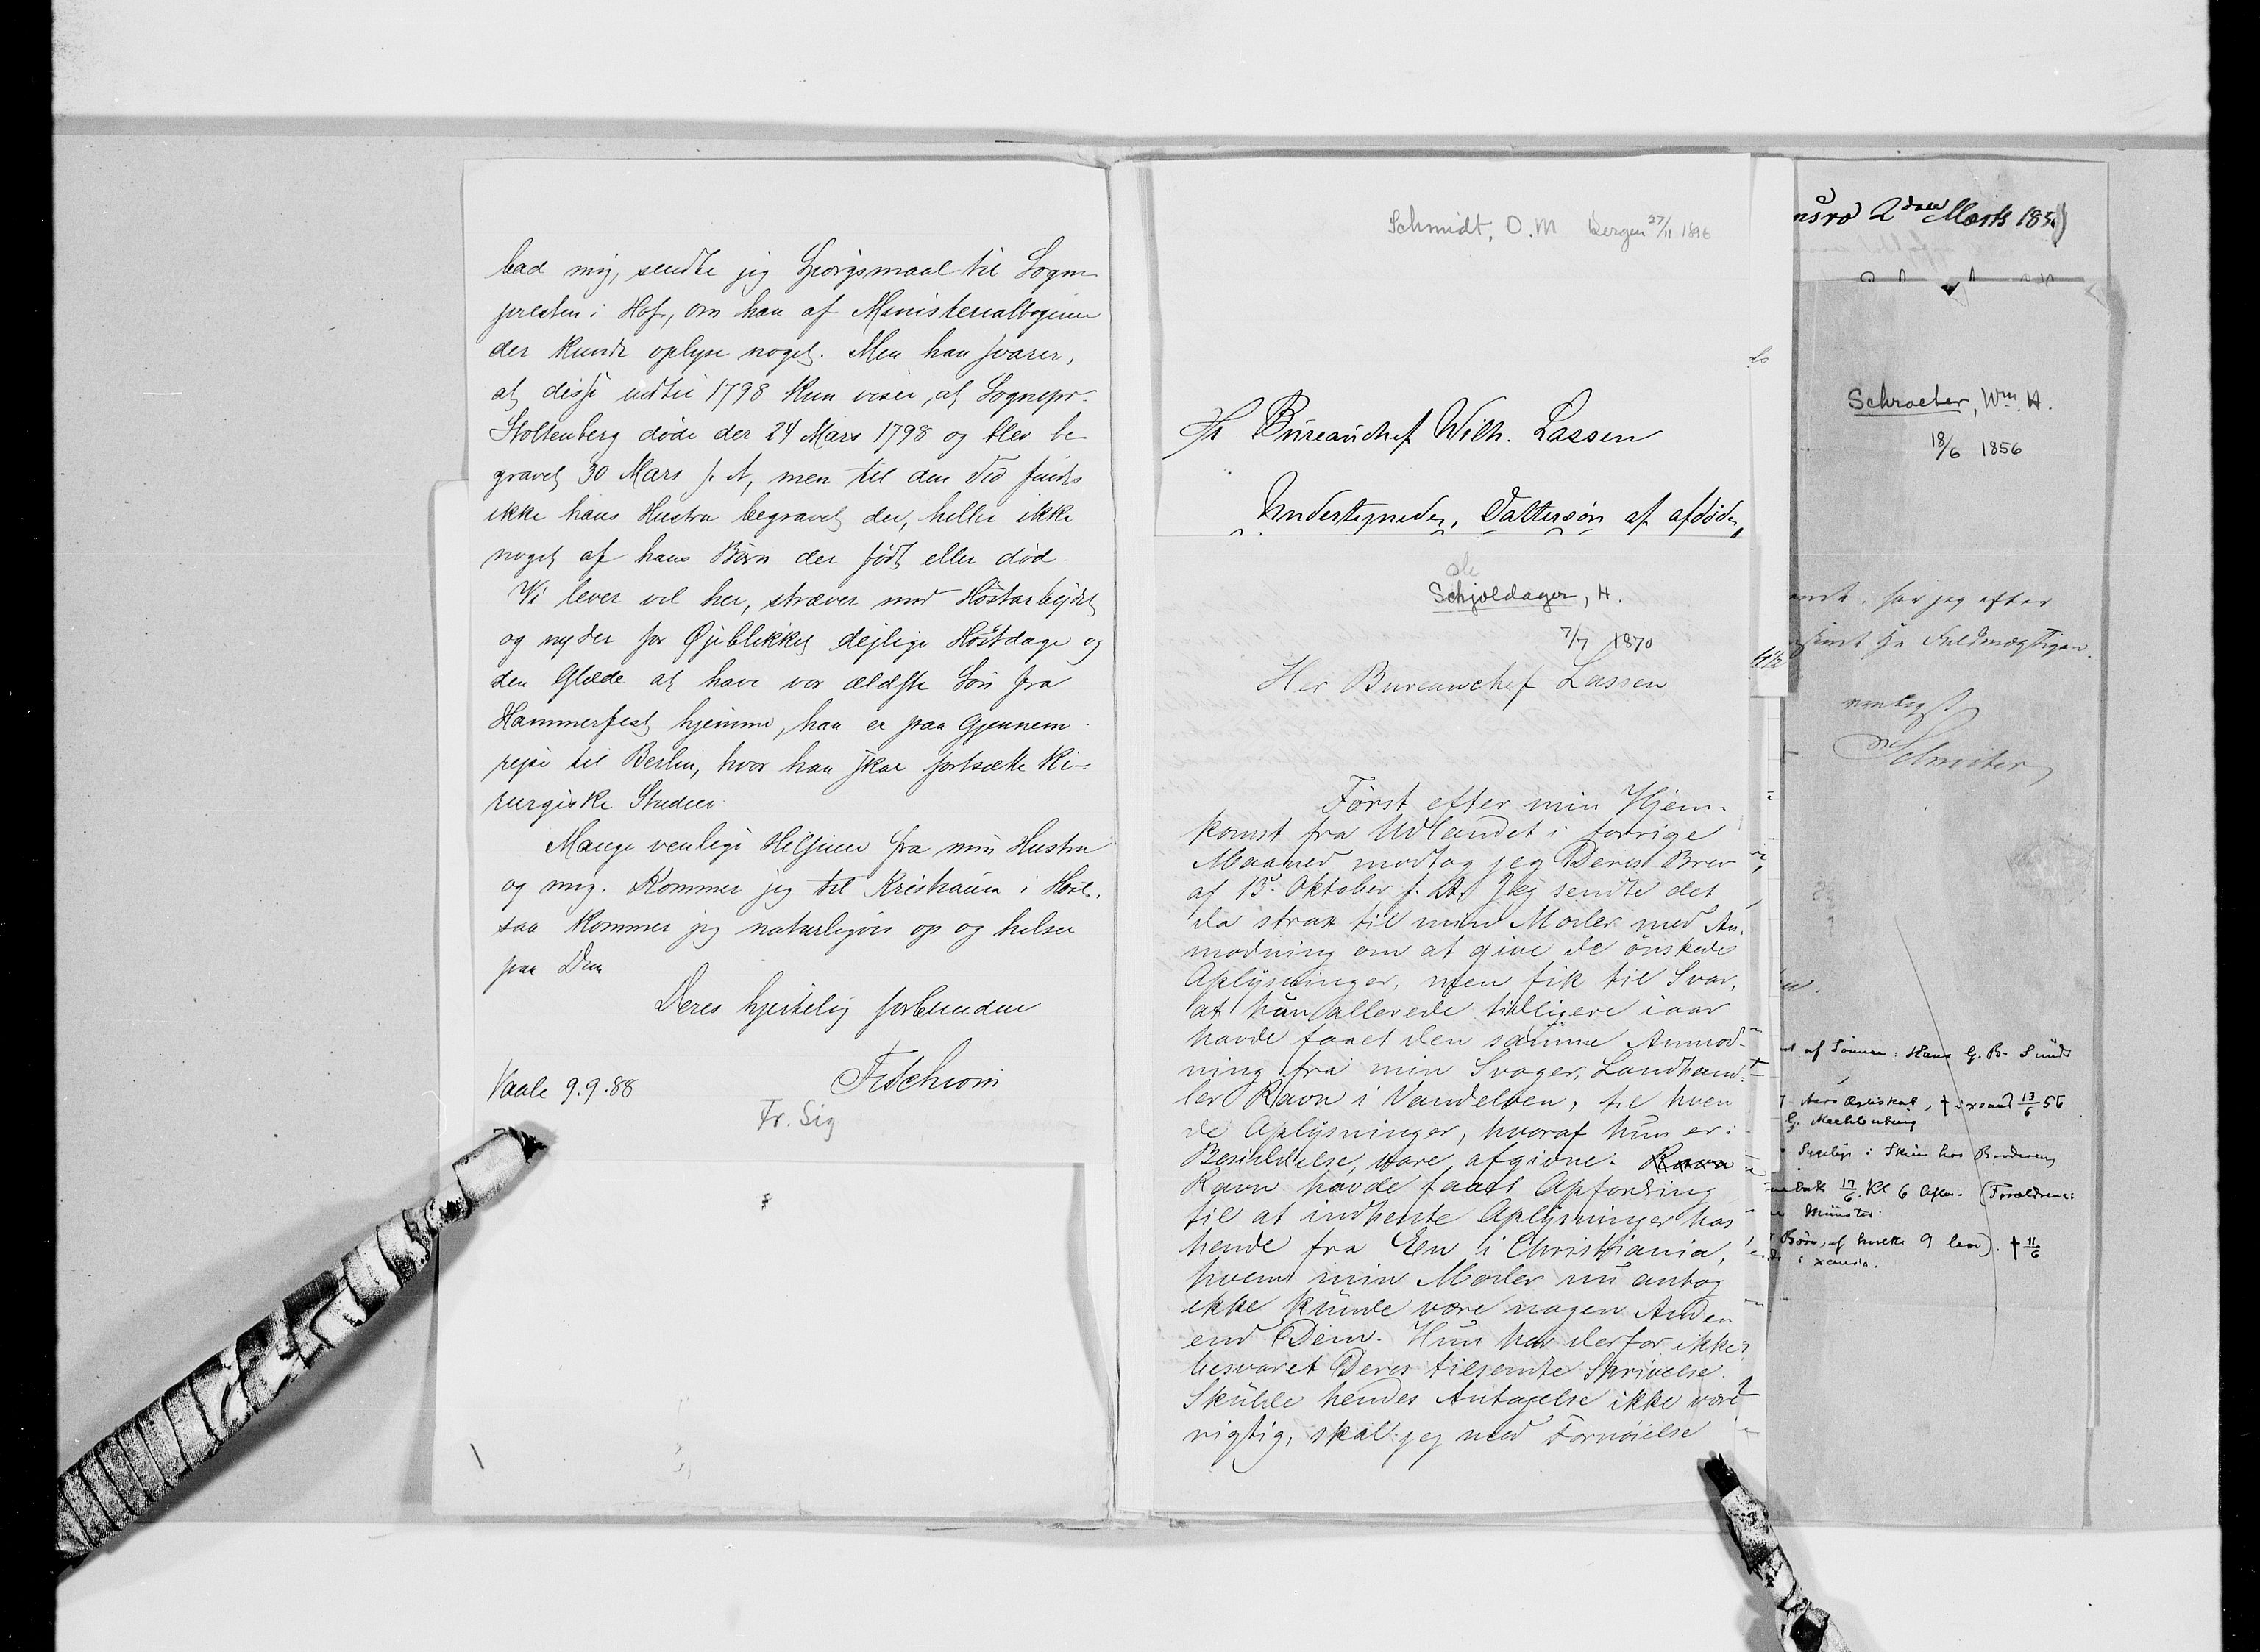 bad mig, sendte jeg Spørgsmaal til Sogne-
presten i Hof, om han af Ministerialbøgerne
der kunde oplyse noget. Men han svarer,
at disse indtil 1798 kun viser, at Sognepr.
Stoltenberg døde der 24 Mars 1798 og blev be-
gravet 30 Mars s. A, men til den Tid findes
ikke hans Hustru begravet der, heller ikke
noget af hans Børn der født eller død.
Vi lever vel her, stræver med Høstarbejdet
og nyder for Øjeblikket dejlige Høstdage og
den Glæde at have vor ældste Søn fra
Hammerfest hjemme, han er paa Gjennem-
rejse til Berlin, hvor han skal fortsætte Ki-
rurgiske Studier.
Mange venlige Hilsener fra min Hustru
og mig. Kommer jeg til Kristiania i Høst,
saa kommer jeg naturligvis op og hilser
paa Dem
Deres hjertelig forbundne
Vaale 9.9.88
Fr. Sig
Schmidt, O. M Bergen 27/11 1896
Hr Bureauchef Wilh. Lassen
Undertegnede, Dattersøn af afdøde
Ole
Schjoldager, H.
7/7 1870
Her Bureauchef Lassen
Först efter min Hjem-
komst fra Udlandet i forrige
Maaned modtog jeg Deres Brev
af 15. Oktober f. A. Jeg sendte det
da strax til min Moder med An-
modning om at give de önskede
Oplysninger, men fik til Svar,
at hun allerede tidligere iaar
havde faaet den samme Anmod-
ning fra min Svoger, Landhand-
ler Ravn i Vandelven, til hvem
de Oplysninger, hvoraf hun er i
Besiddelse, vare afgivne. Ravn
Ravn havde faaet Opfordring
til at indhente Oplysninger hos
hende fra Een i Christiania,
hvem min Moder nu antog
ikke kunde være nogen Anden
end Dem. Hun har derfor ikke
besvaret Deres tilsendte Skrivelse.
Skulde hendes Antagelse ikke være
rigtig, skal jeg med Fornöielse
2den Marts 185
Schroeter, Wm. H.
18/6 1856
har jeg efter
Fuldmægtigen.
venligst
af Sønnen: Hans G. B. Sund
† i xania 13/6 56
G. Mechlenburg
i Skien hos Broderen
17/6. Kl 6 (Forældrene:
Münster
Børn, af hvilke 9 lever). † 11/6
i xania.